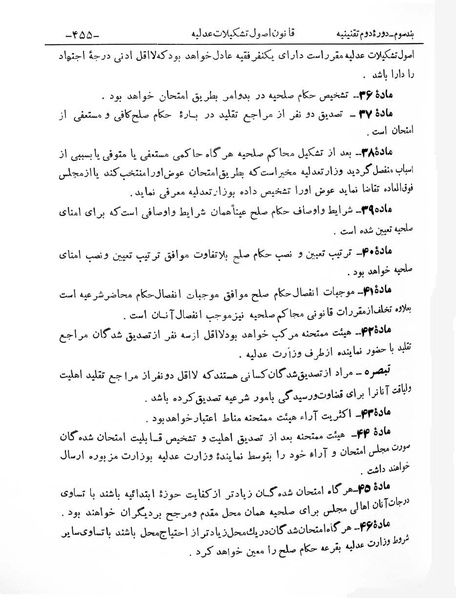 بندسوم_دورهٔ دوم تقنینیه قانون اصول تشکیلات عدلیه _۴۵۵_
اصول تشکیلات عدلیه مقرر است دارای یکنفر فقیه عادل خواهد بود که لااقل ادنی درجهٔ اجتهاد
را دارا باشد .
مادهٔ ۳۶_ تشخیص حکام صلحیه در بدو امر بطریق امتحان خواهد بود .
مادهٔ ۳۷ _ تصدیق دو نفر از مراجع تقلید در بارهٔ حکام صلح کافی و مستعفی از
امتحان است .
مادهٔ ۳۸_ بعد از تشکیل محاکم صلحیه هر گاه حاکمی مستعفی یا متوفی یا بسببی از
اسباب منفصل گردید وزارتعدلیه مخیر است که بطریق امتحان عوض اورا منتخب کند یا از مجلس
فوق العاده تقاضا نماید عوض اورا تشخیص داده بوزارتعدلیه معرفی نماید .
مادهٔ ۳۹_ شرایط و اوصاف حکام صلح عیناً همان شرایط و اوصافی است که برای امنای
صلحیه تعیین شده است .
مادهٔ ۴۰_ ترتیب تعیین و نصب حکام صلح بلاتفاوت موافق ترتیب تعیین و نصب امنای
صلحیه خواهد بود .
مادهٔ ۴۱_ موجبات انفصال حکام صلح موافق موجبات انفصال حکام محاضر شرعیه است
بعلاوه تخلف از مقررات قانونی محاکم صلحیه نیز موجب انفصال آنان است .
مادهٔ ۴۲_ هیئت ممتحنه مرکب خواهد بود لااقل از سه نفر از تصدیق شدگان مراجع
تقلید با حضور نماینده از طرف وزارت عدلیه .
تبصره _ مراد از تصدیق شدگان کسانی هستند که لااقل دو نفر از مراجع تقلید اهلیت
ولیاقت آنانرا برای قضاوت و رسیدگی بامور شرعیه تصدیق کرده باشد .
مادهٔ ۴۳_ اکثریت آراء هیئت ممتحنه مناط اعتبار خواهد بود .
مادهٔ ۴۴_ هیئت ممتحنه بعد از تصدیق اهلیت و تشخیص قابلیت امتحان شده گان
صورت مجلس امتحان و آراء خود را بتوسط نمایندهٔ وزارت عدلیه بوزارت مزبوره ارسال
خواهند داشت .
مادهٔ ۴۵_ هر گاه امتحان شده گان زیادتر از کفایت حوزهٔ ابتدائیه باشند با تساوی
درجات آنان اهالی مجلس برای صلحیه همان محل مقدم و مرجح بردیگران خواهند بود .
مادهٔ ۴۶_ هر گاه امتحان شدگان دریک محل زیادتر از احتیاج محل باشند با تساوی سایر
شروط وزارت عدلیه بقرعه حکام صلح را معین خواهد کرد .